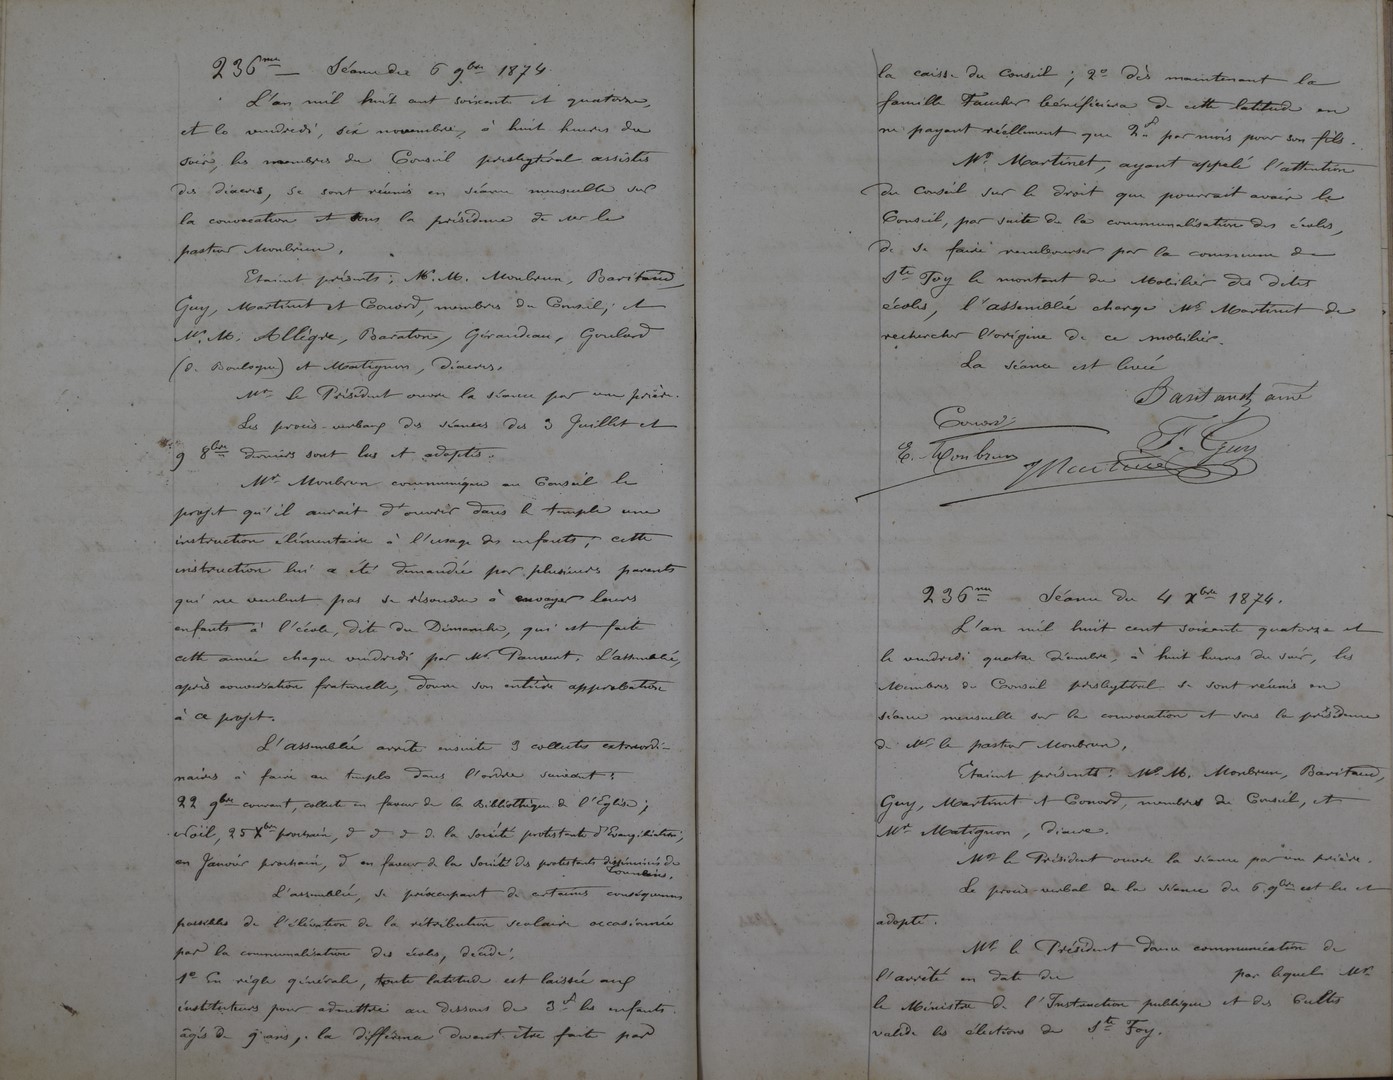 236me — Séance du 6 9bre 1874.
L'an mil huit cent soixante et quatorze,
et le vendredi, six novembre, à huit heures du
soir, les membres du Conseil presbytéral assistés
des diacres, se sont réunis en séance mensuelle sur
la convocation et sous la présidence de Mr le
pasteur Monbrun.
Etaient présents : Mr. M. Monbrun, Baritaud,
Guy, Martinet et Conord, membres du Conseil ; et
Mr. M. Allègre, Baraton, Giraudeau, Goulard
(de Boulogne) et Matignon, diacres.
Mr le Président ouvre la séance par une prière.
Les procès-verbaux des séances des 3 Juillet et
9 8bre derniers sont lus et adoptés.
Mr Monbrun communique au Conseil le
projet qu'il aurait d'ouvrir dans le temple une
instruction élémentaire à l'usage des enfants ; cette
instruction lui a été demandée par plusieurs parents
qui ne veulent pas se résoudre à envoyer leurs
enfants à l'école, dite du Dimanche, qui est faite
cette année chaque vendredi par Mr. Pauvert. L'assemblée,
après conversation fraternelle, donne son entière approbation
à ce projet.
L'assemblée arrête ensuite 3 collectes extraordi-
naires à faire au temple dans l'ordre suivant :
22 9bre courant, collecte en faveur de la Bibliothèque de l'Eglise ;
Noël, 25 Xbre prochain, d° d° d° de la Société protestante d'Evangélisation ;
en Janvier prochain, d° en faveur de la Société des protestants disséminés de
Tonneins.
L'assemblée, se préoccupant de certaines conséquences
possibles de l'élévation de la rétribution scolaire occasionnée
par la communalisation des écoles, décide :
1° En règle générale, toute latitude est laissée aux
instituteurs pour admettre au dessous de 3f les enfants
âgés de 9 ans, la différence devant être faite par
la caisse du Conseil ; 2° dès maintenant la
famille Faucher bénéficiera de cette latitude en
ne payant réellement que 2f par mois pour son fils.
Mr. Martinet, ayant appelé l'attention
du Conseil sur le droit que pourrait avoir le
Conseil, par suite de la communalisation des écoles,
de se faire rembourser par la commune de
Ste Foy le montant du Mobilier des dites
écoles, l'assemblée charge Mr Martinet de
rechercher l'origine de ce mobilier.
La séance est levée
Baritaud ainé
Conord
F. Guy
E. Monbrun
Martinet
236me Séance du 4 Xbre 1874.
L'an mil huit cent soixante quatorze et
le vendredi quatre décembre, à huit heures du soir, les
Membres du Conseil presbytéral se sont réunis en
séance mensuelle sur la convocation et sous la présidence
de Mr le pasteur Monbrun.
Etaient présents : Mr. M. Monbrun, Baritaud,
Guy, Martinet et Conord, membres du Conseil, et
Mr Matignon, diacre.
Mr le Président ouvre la séance par une prière.
Le procès-verbal de la séance du 6 9bre est lu et
adopté.
Mr le Président donne communication de
l'arrêté en date du par lequel Mr
le Ministre de l'Instruction publique et des Cultes
valide les élections de Ste Foy.